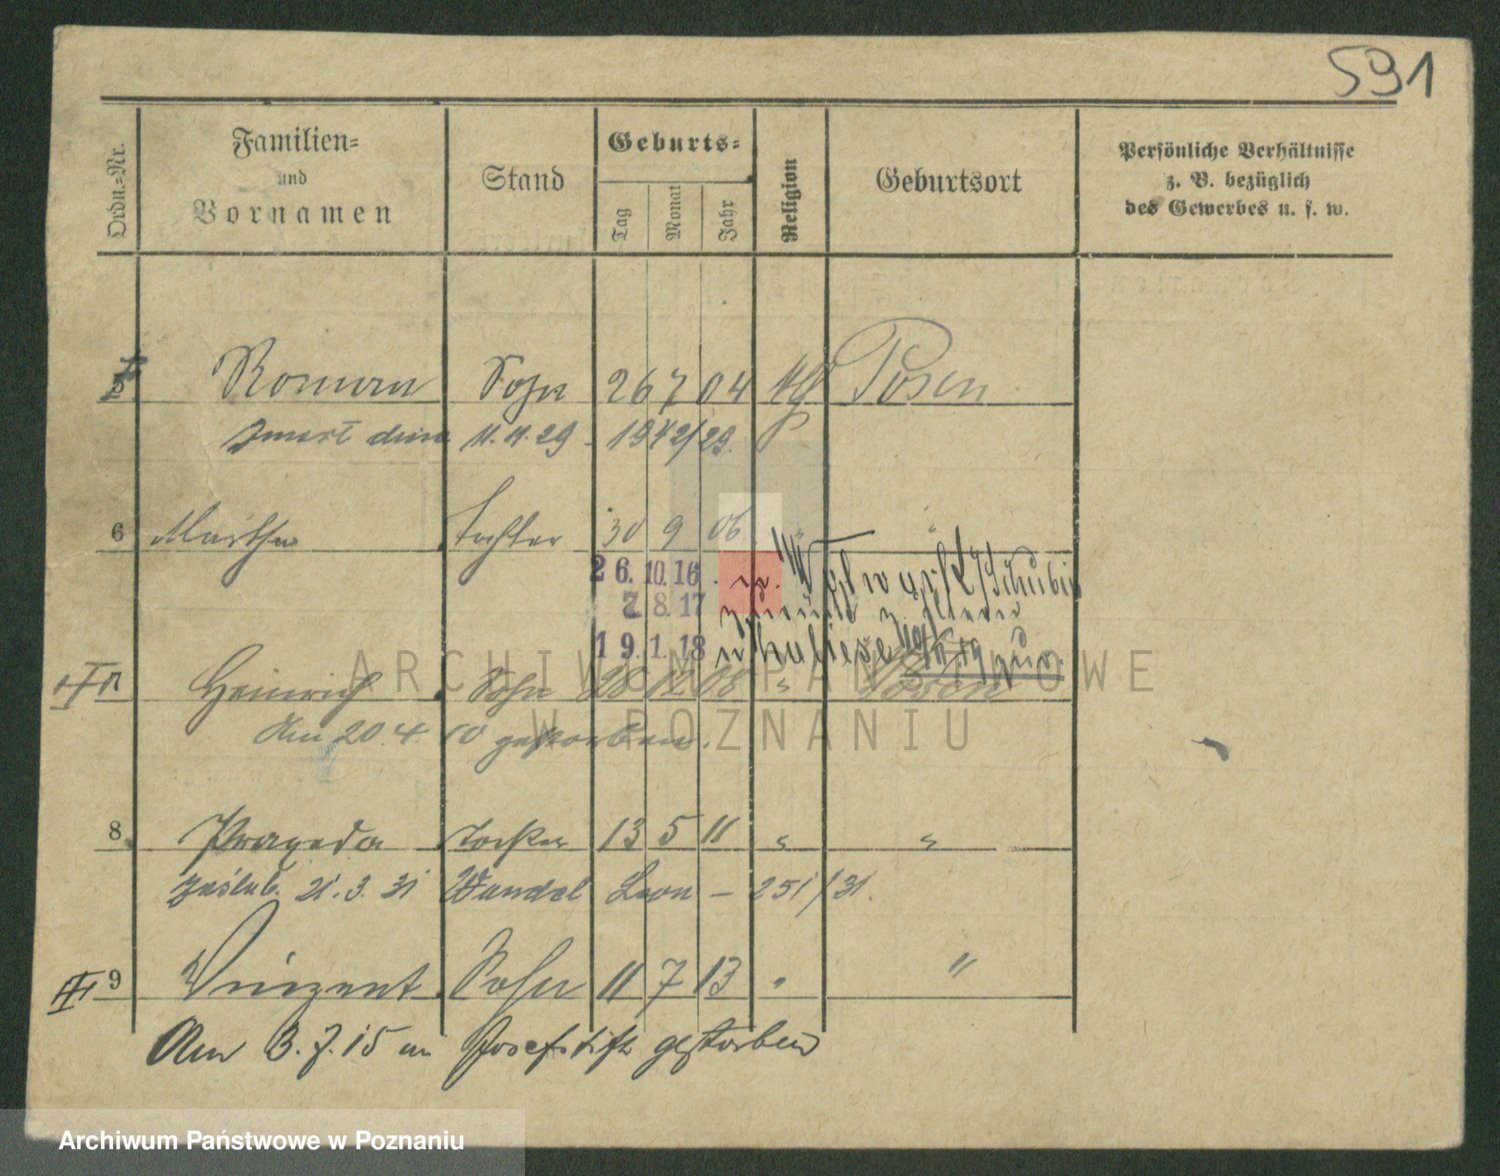 591
Ordn.-Nr.
Familien-
und
Vornamen
Stand
Geburts-
Tag
Monat
Jahr
Religion
Geburtsort
Persönliche Verhältnisse
z. B. bezüglich
des Gewerbes u. s. w.
Roman Sohn 26 7 04 Posen
zmarł dnia 11. 4. 29 - 1942/29.
6 Martha Tochter 30 9 06
26.10.16.
2.8.17
19.1.18
7 Heinrich Sohn 28 12 08 " Posen
Am 20.4.10 gestorben.
8 Praxeda Tochter 13 5 11 " "
zaślub. 21. 3. 31 Wandel Leon - 251/31.
9 Vinzent Sohn 11 7 13 " "
Am 3.7.15 im Josefstift gestorben
ARCHIWUM PAŃSTWOWE
W POZNANIU
Archiwum Państwowe w Poznaniu